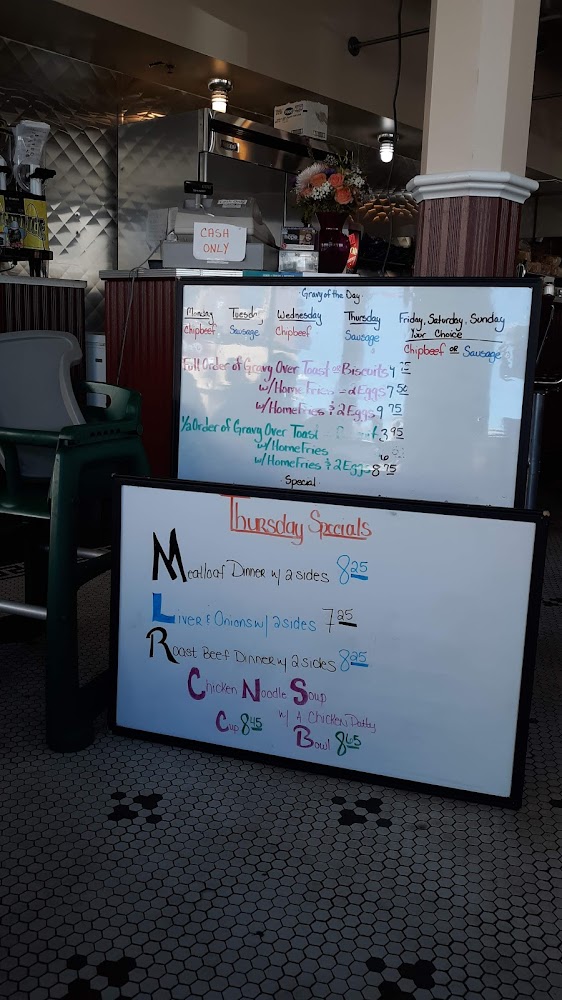 CASH
ONLY
Gravy of the Day
Monday Tuesday Wednesday Thursday Friday, Saturday, Sunday
Chipbeef Sausage Chipbeef Sausage Your Choice
Chipbeef or Sausage
Full Order of Gravy Over Toast or Biscuits
w/Home Fries 2 Eggs 7 50
w/Home Fries & 2 Eggs 9 75
1/2 Order of Gravy Over Toast 3 95
w/ Home Fries
w/ Home Fries & 2 Eggs 8 75
Special
Thursday Specials
Meatloaf Dinner w/ 2 sides 8 25
Liver & Onions w/ 2 sides 7 25
Roast Beef Dinner w/ 2 sides 8 25
Chicken Noodle Soup
w/ A Chicken Patty
Cup 8 45 Bowl 8 65